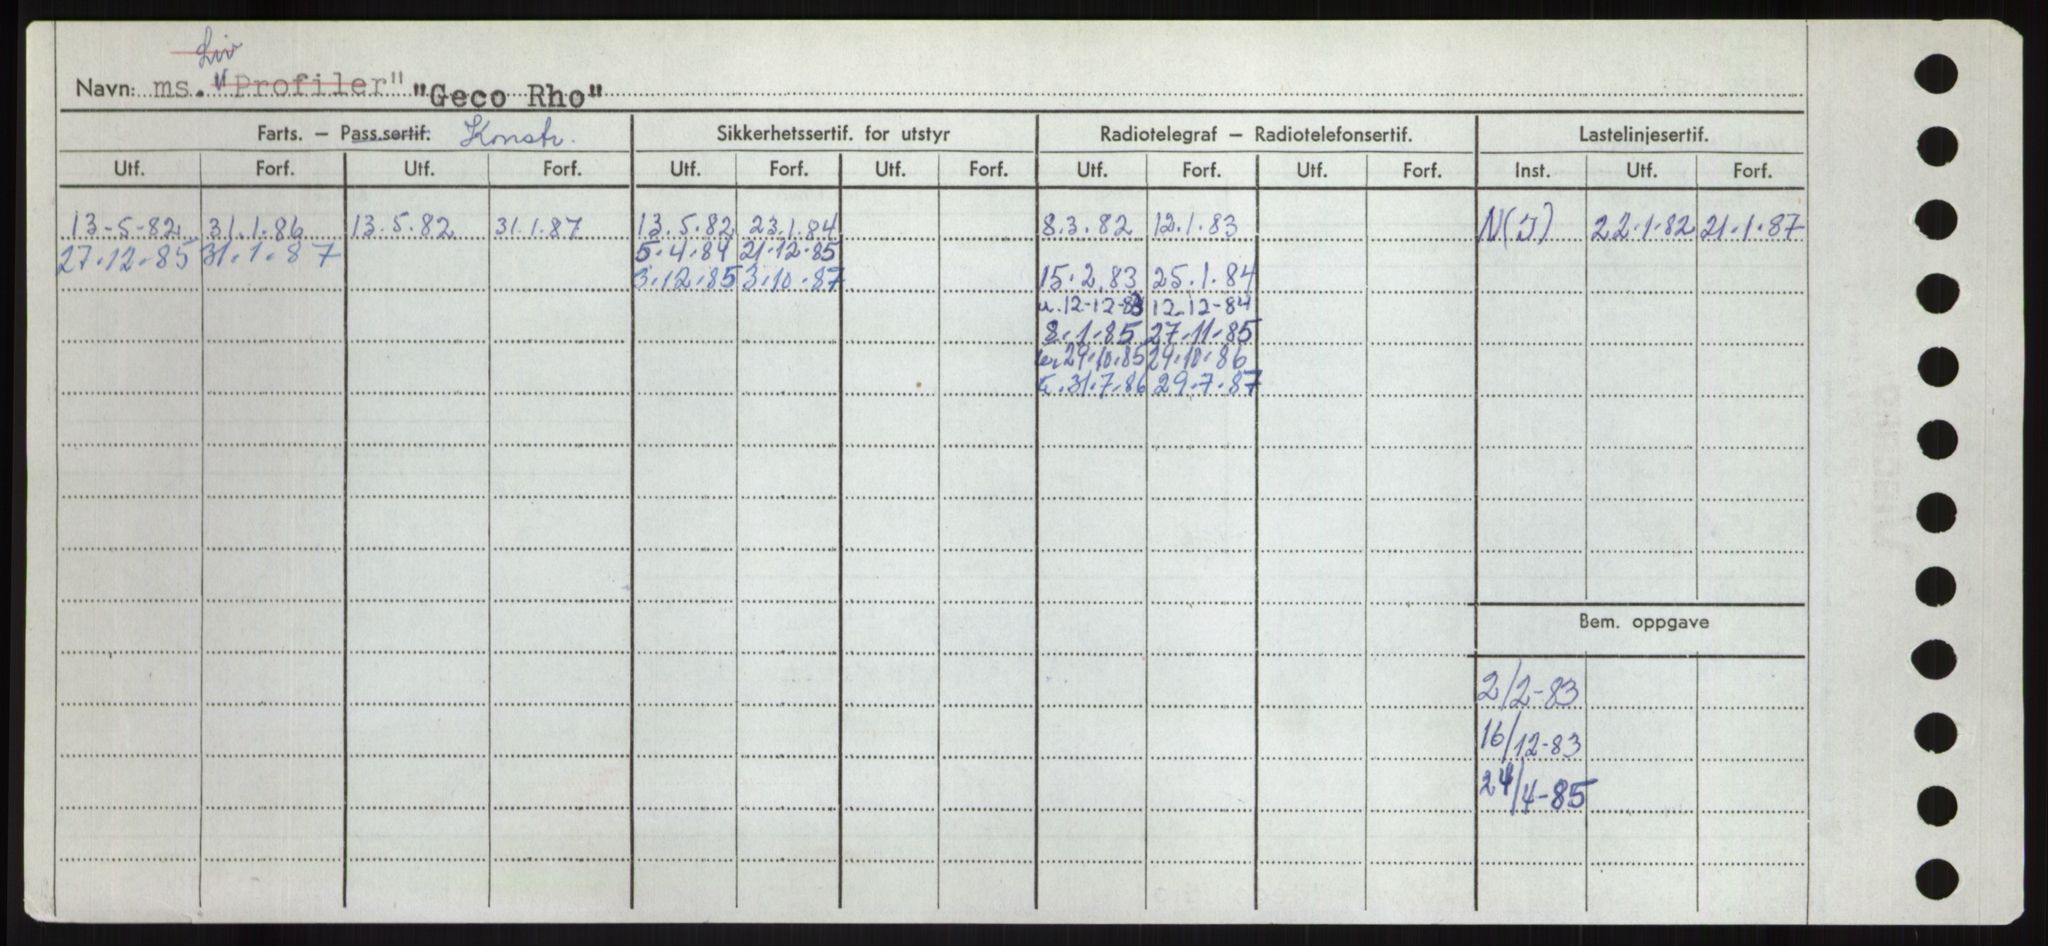 Liv
Navn: ms. "Profiler" "Geco Rho"
Farts. – Pass.sertif. Konstr. Sikkerhetssertif. for utstyr Radiotelegraf – Radiotelefonsertif. Lastelinjesertif.
Utf. Forf. Utf. Forf. Utf. Forf. Utf. Forf. Utf. Forf. Utf. Forf. Inst. Utf. Forf.
13-5-82 31.1.86 13.5.82 31.1.87 13.5.82 23.1.84 8.3.82 12.1.83 N(I) 22.1.82 21.1.87
27.12.85 31.1.87 5.4.84 21.12.85
3.12.85 3.10.87 15.2.83 25.1.84
u.12-12-83 12.12-84
8.1.85 27.11.85
29.10.85 29.10.86
31.7.86 29.7.87
Bem. oppgave
2/2-83
16/12-83
24/4-85